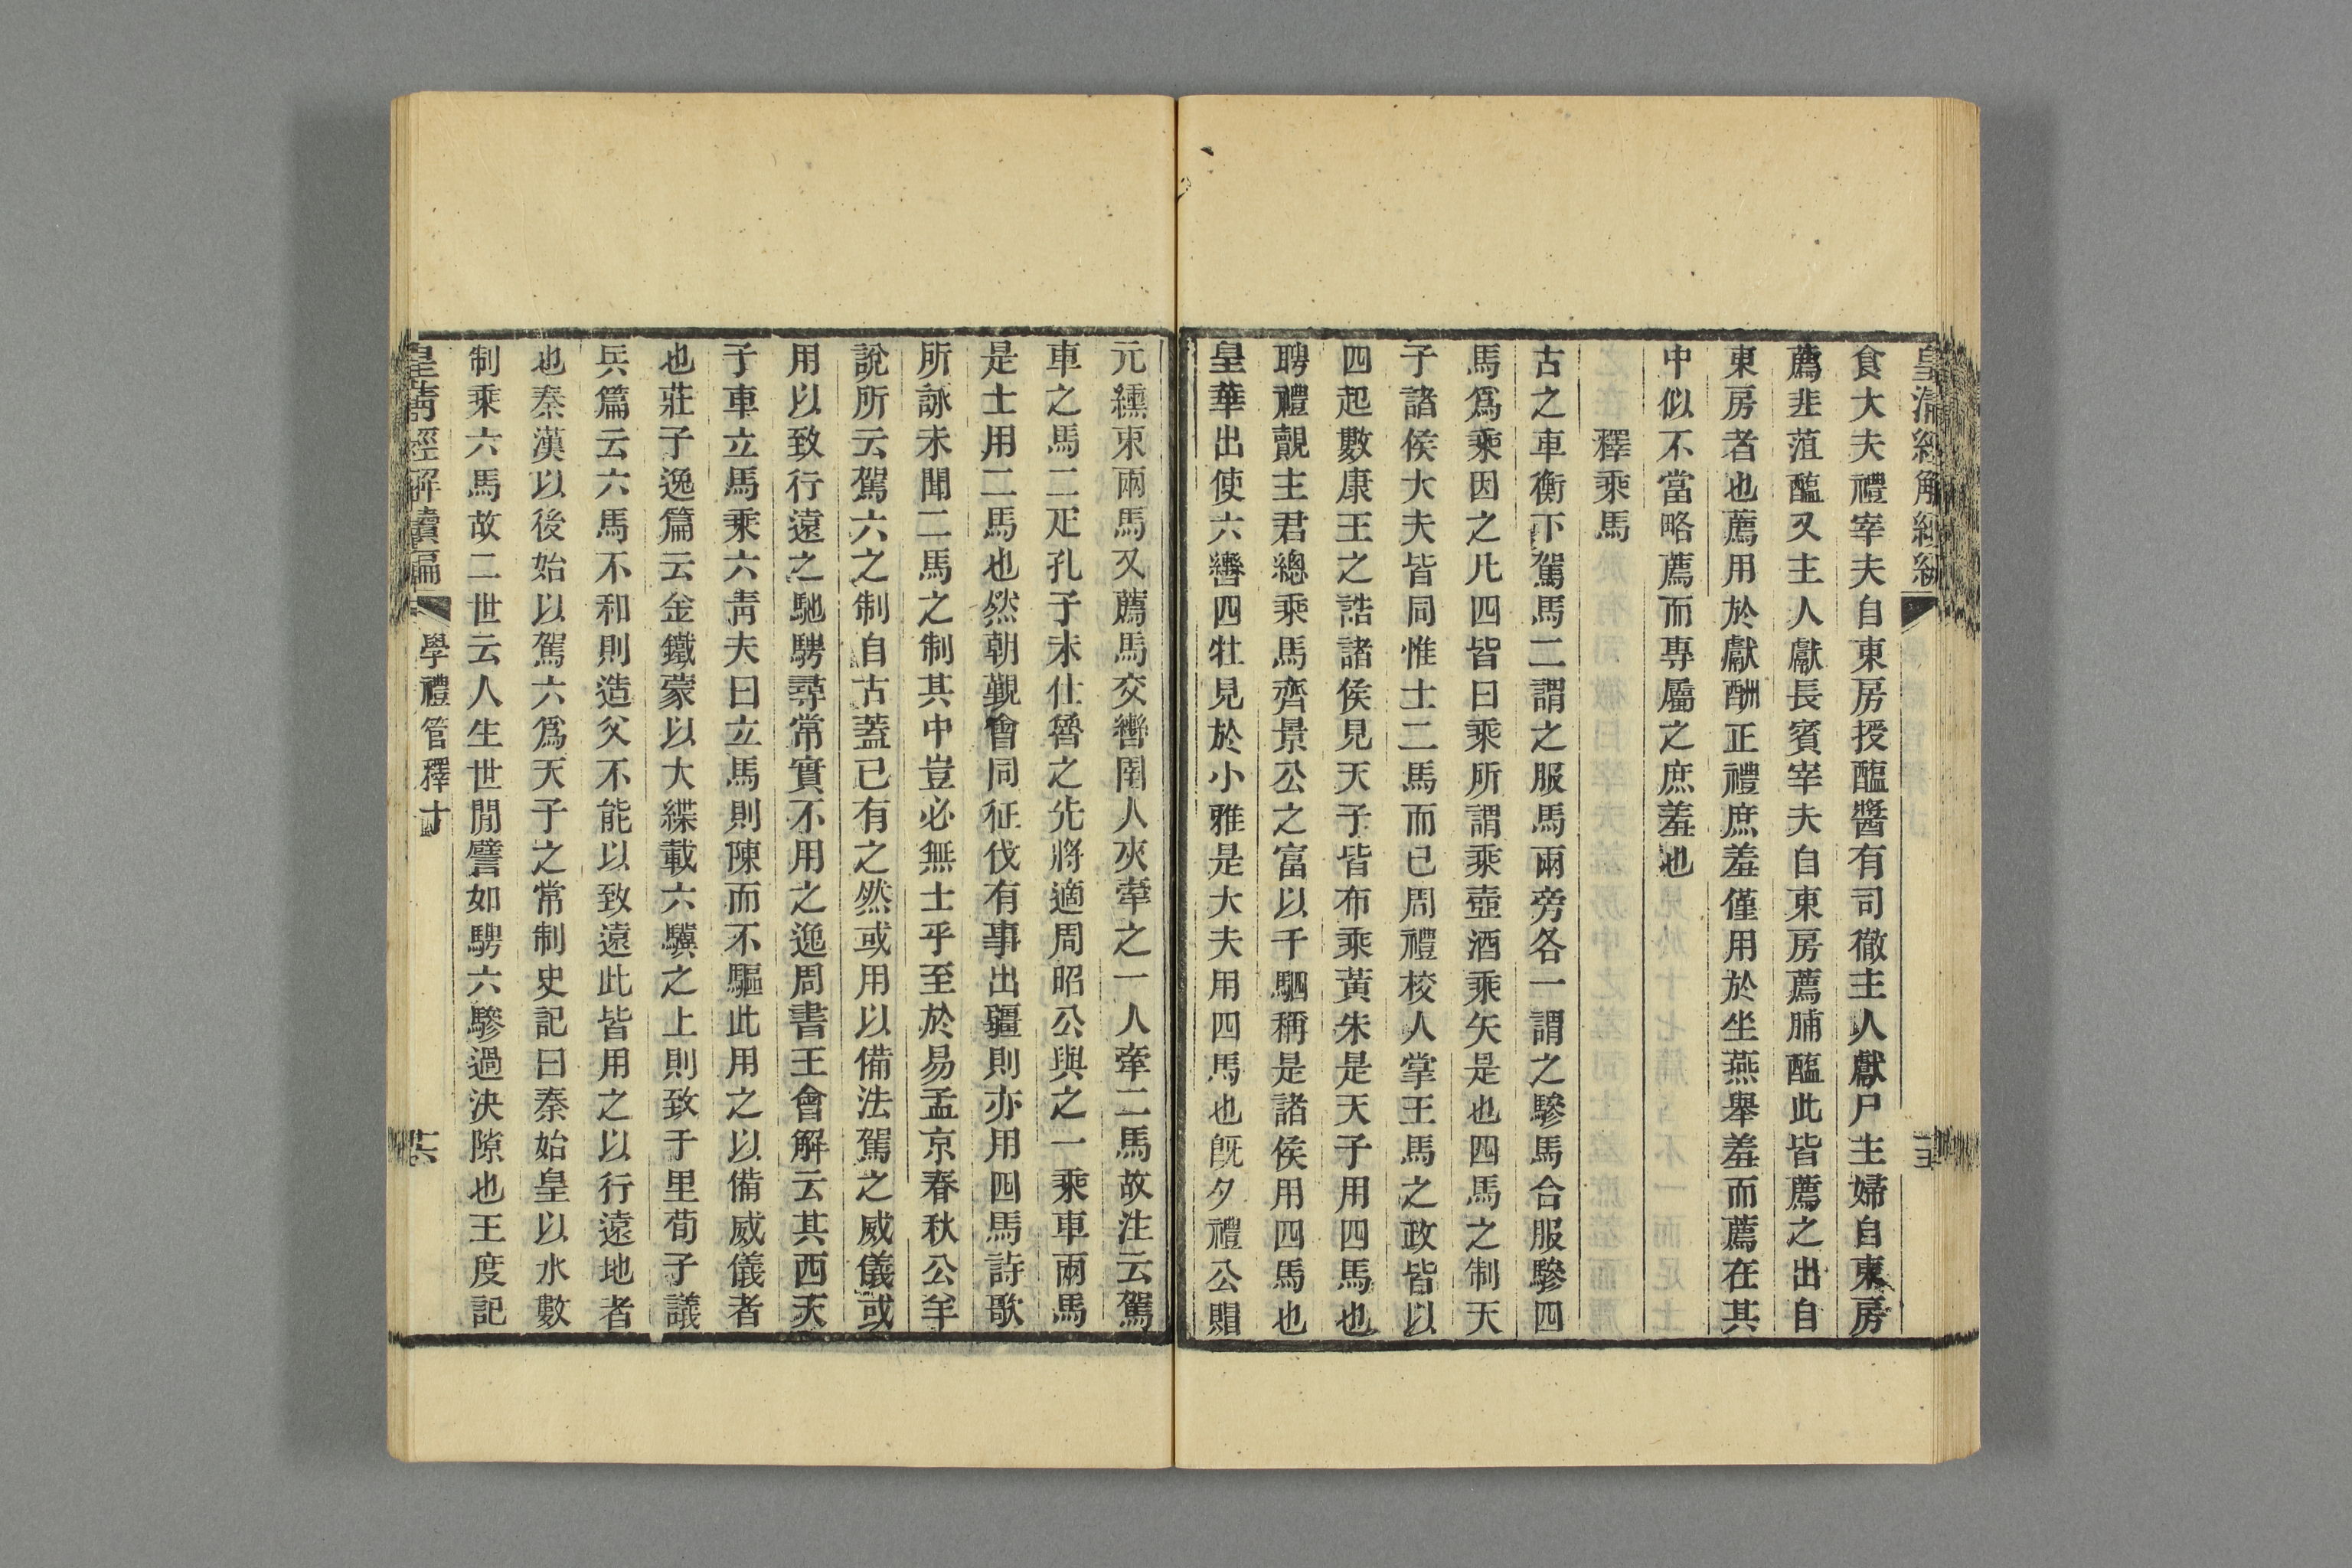 食大夫禮宰夫自東房授醢醬有司徹主人獻尸主婦自東房
薦韭菹醢又主人獻長賓宰夫自東房薦脯醢此皆薦之出自
東房者也薦用於獻酬正禮庶羞僅用於坐燕舉羞而薦在其
中似不當略薦而專屬之庶羞也
釋乘馬
古之車衡下駕馬二謂之服馬兩旁各一謂之驂馬合服驂四
馬爲乘因之凡四皆曰乘所謂乘壺酒乘矢是也四馬之制天
子諸侯大夫皆同惟士二馬而已周禮校人掌王馬之政皆以
四起數康王之誥諸侯見天子皆布乘黃朱是天子用四馬也
聘禮覿主君總乘馬齊景公之富以千駟稱是諸侯用四馬也
皇華出使六轡四牡見於小雅是大夫用四馬也旣夕禮公賵
元纁束兩馬又薦馬交轡圉人夾牽之一人牽二馬故注云駕
車之馬二疋孔子未仕魯之先將適周昭公與之一乘車兩馬
是士用二馬也然朝覲會同征伐有事出疆則亦用四馬詩歌
所詠未聞二馬之制其中豈必無士乎至於易孟京春秋公羊
說所云駕六之制自古蓋已有之然或用以備法駕之威儀或
用以致行遠之馳騁尋常實不用之逸周書王會解云其西天
子車立馬乘六靑夫曰立馬則陳而不驅此用之以備威儀者
也莊子逸篇云金鐵蒙以大緤載六驥之上則致千里荀子議
兵篇云六馬不和則造父不能以致遠此皆用之以行遠地者
也秦漢以後始以駕六爲天子之常制史記曰秦始皇以水數
制乘六馬故二世云人生世閒譬如騁六驂過決隙也王度記
皇淸經解續編
學禮管釋十
十六